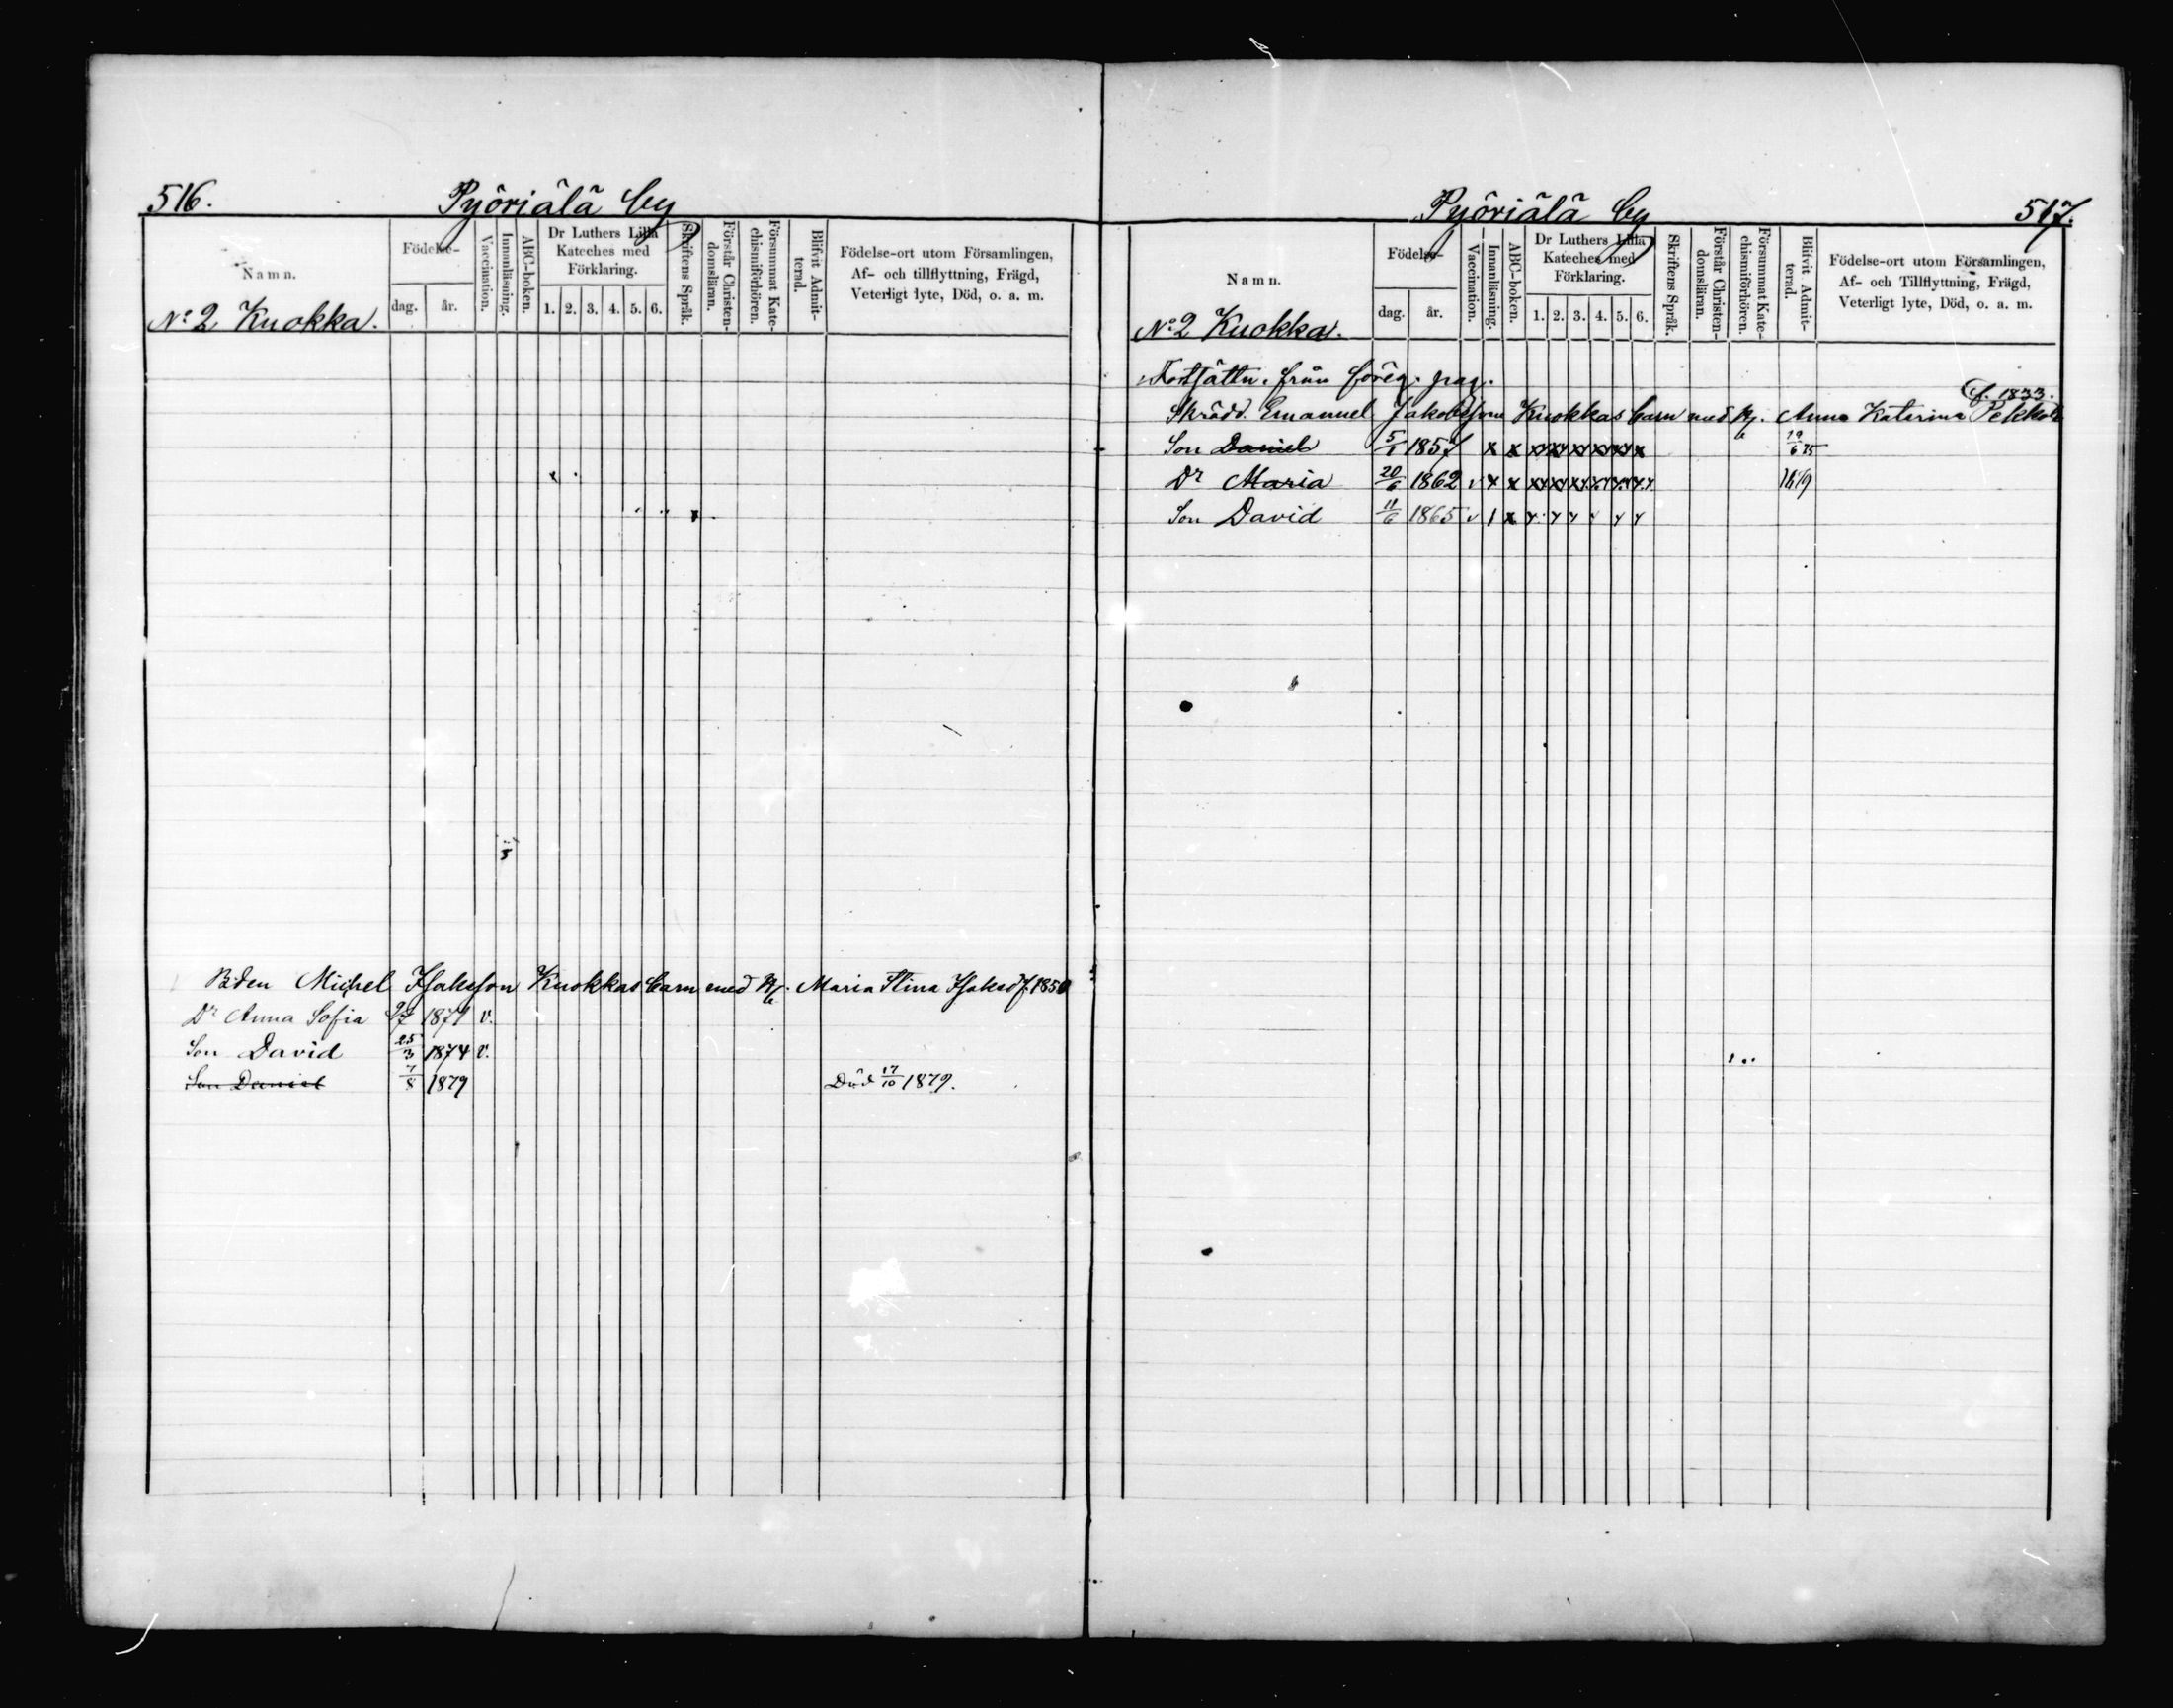 516. Pyöriälä by
Namn. Födelse- Vaccination. Innanläsning. ABC-boken. Dr Luthers Lilla Kateches med Förklaring. Skriftens Språk. Förstår Christendomsläran. Försummat Katechismiförhören. Blifvit Admitterad. Födelse-ort utom Församlingen, Af- och tillflyttning, Frägd, Veterligt lyte, Död, o. a. m.
dag. år. 1. 2. 3. 4. 5. 6.
No 2 Knokka.
Bden Michel Isaksson Knokkas barn med h. Maria Stina Isaksd f. 1850
Dr Anna Sofia 9/7 1871 v.
Son David 25/3 1874 v.
Son Daniel 7/8 1879 Död 17/10 1879.
Pyöriälä by 517.
Namn. Födelse- Vaccination. Innanläsning. ABC-boken. Dr Luthers Lilla Kateches med Förklaring. Skriftens Språk. Förstår Christendomsläran. Försummat Katechismiförhören. Blifvit Admitterad. Födelse-ort utom Församlingen, Af- och Tillflyttning, Frägd, Veterligt lyte, Död, o. a. m.
dag. år. 1. 2. 3. 4. 5. 6.
No 2 Knokka.
Fortsättn. från föreg. pag.
f. 1833.
Skrädd. Emanuel Jakobssons Knokkas barn med h. Anna Katarina Pekkola
Son Daniel 5/1 1857 x x xx xx xx xx xx x 19/6 75
Dr Maria 20/6 1862 v x x xx xx xx xx xx xx 1619
Son David 11/6 1865 v 1 x